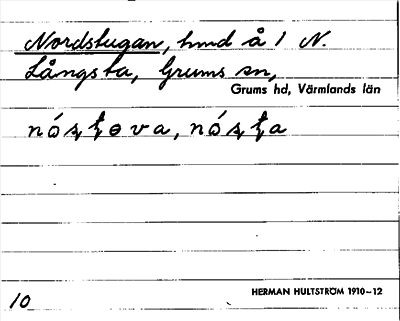 Nordstugan, hmd å 1 N.
Långsta, Grums sn,
Grums hd, Värmlands län
HERMAN HULTSTRÖM 1910–12
10